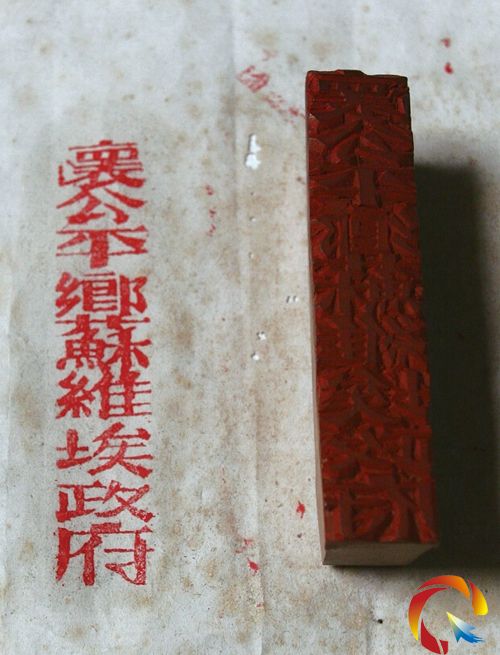 襄公平鄉蘇維埃政府